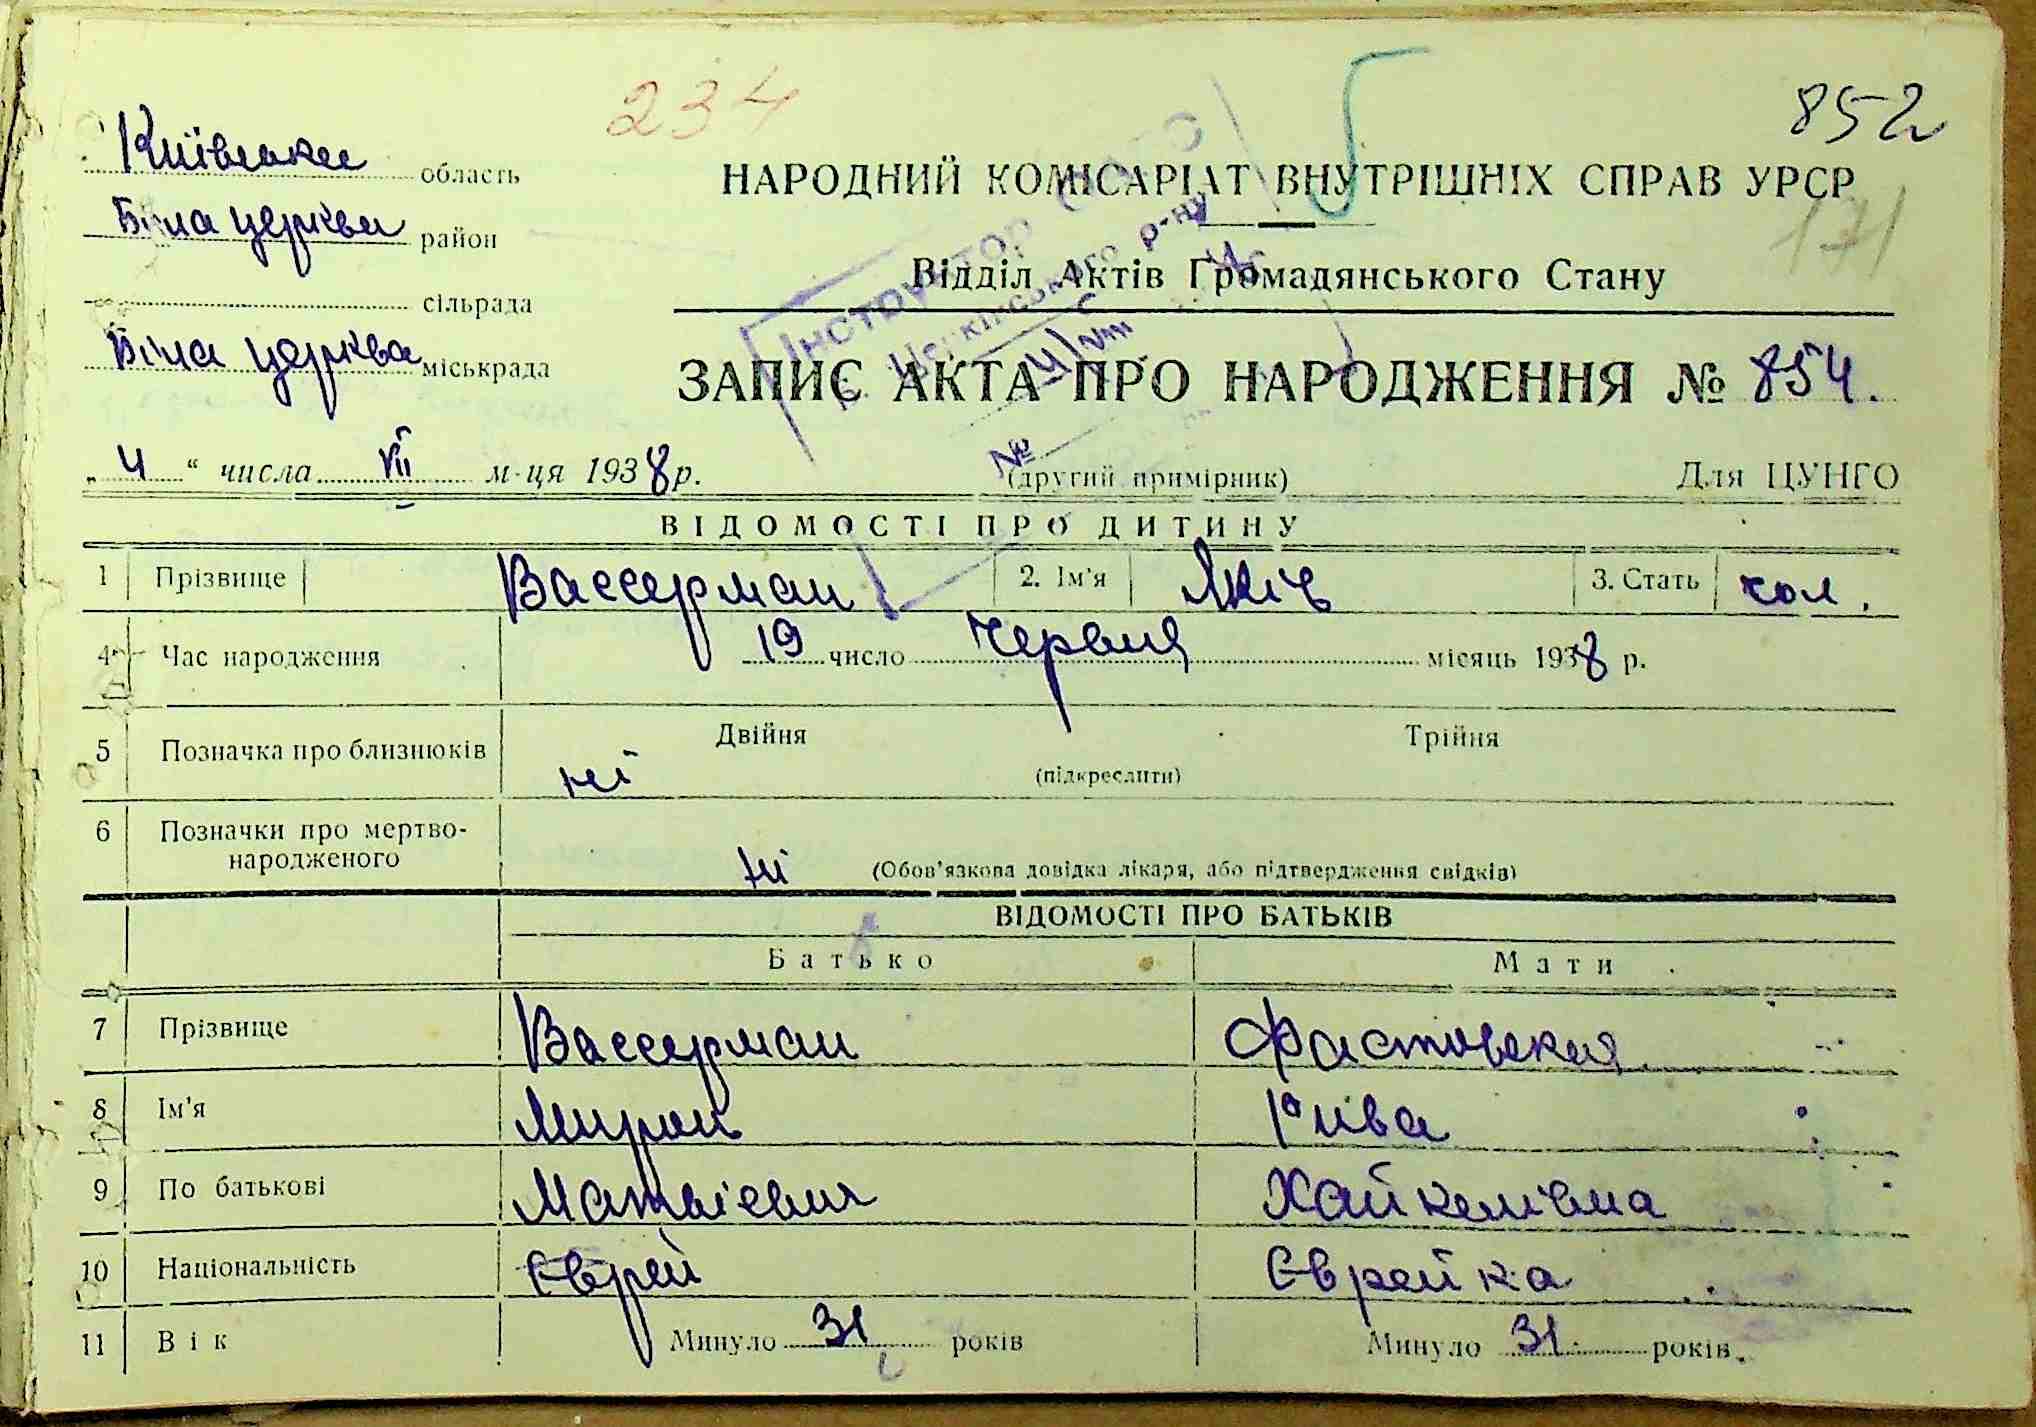 234
852
171
Київська область
Біла церква район
сільрада
Біла церква міськрада
НАРОДНИЙ КОМІСАРІАТ ВНУТРІШНІХ СПРАВ УРСР
Відділ Актів Громадянського Стану
ЗАПИС АКТА ПРО НАРОДЖЕННЯ № 854.
„4“ числа VII м-ця 1938 р.
(другий примірник)
Для ЦУНГО
Інструктор
р-ну
№
ВІДОМОСТІ ПРО ДИТИНУ
1 Прізвище Вассерман 2. Ім'я Яків 3. Стать чол.
4 Час народження 19 число Червня місяць 1938 р.
5 Позначка про близнюків ні Двійня Трійня
(підкреслити)
6 Позначки про мертво-
народженого ні (Обов'язкова довідка лікаря, або підтвердження свідків)
ВІДОМОСТІ ПРО БАТЬКІВ
Батько Мати
7 Прізвище Вассерман Фастовская
8 Ім'я Мирон Рива
9 По батькові Матвієвич Хайкелівна
10 Національність Єврей Єврейка
11 Вік Минуло 31 років Минуло 31 років.